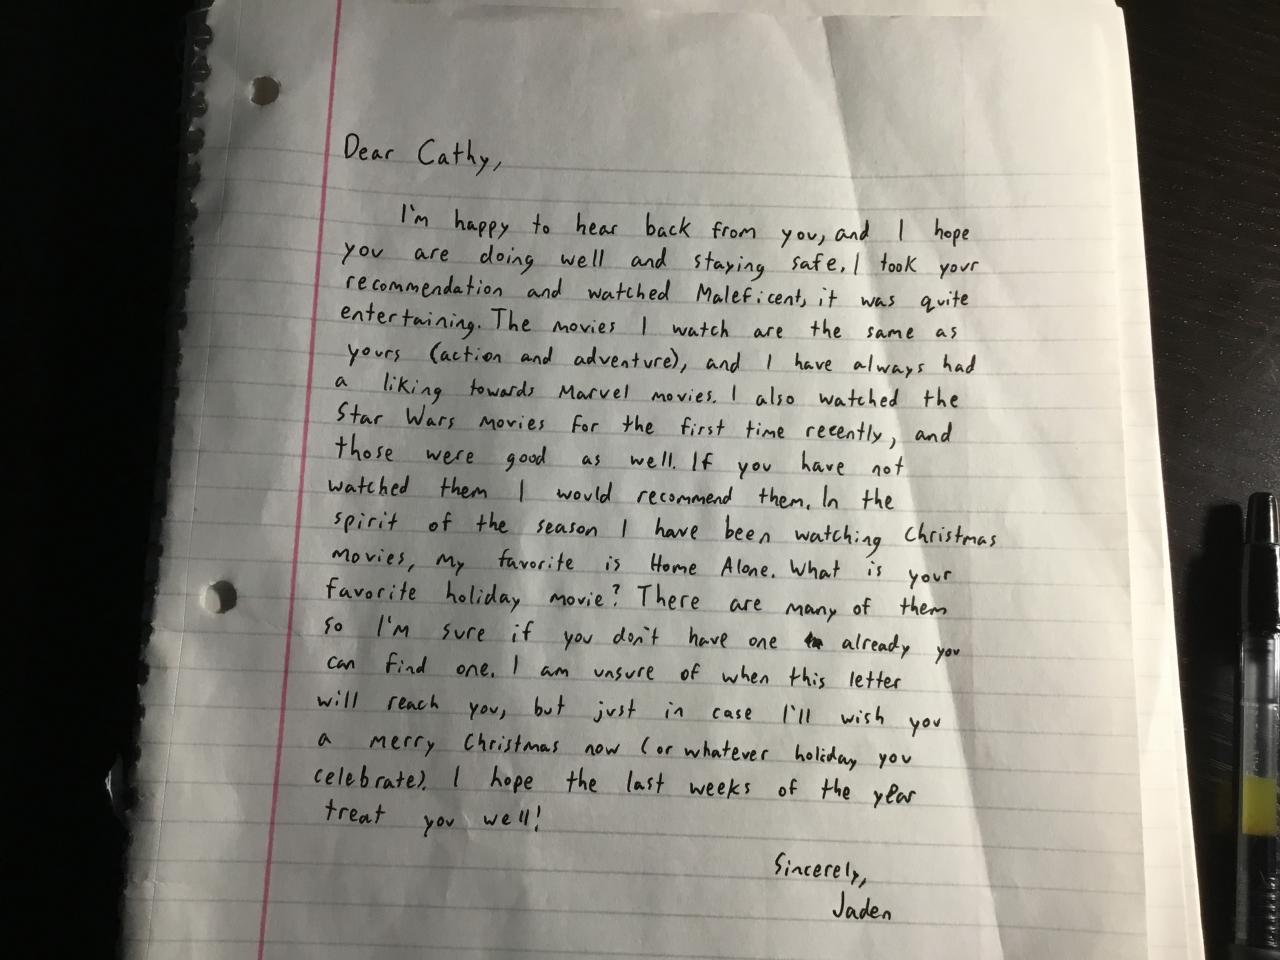 Dear Cathy,
I'm happy to hear back from you, and I hope
you are doing well and staying safe. I took your
recommendation and watched Maleficent, it was quite
entertaining. The movies I watch are the same as
yours (action and adventure), and I have always had
a liking towards Marvel movies. I also watched the
Star Wars movies for the first time recently, and
those were good as well. If you have not
watched them I would recommend them. In the
spirit of the season I have been watching Christmas
movies, my favorite is Home Alone. What is your
favorite holiday movie? There are many of them
so I'm sure if you don't have one already you
can find one. I am unsure of when this letter
will reach you, but just in case I'll wish you
a merry Christmas now (or whatever holiday you
celebrate). I hope the last weeks of the year
treat you well!
Sincerely,
Jaden